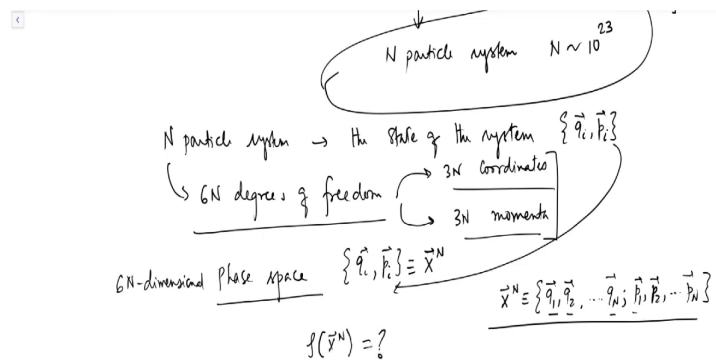 N particle system N ~ 10^23
N particle system → the state of the system {q⃗_i, p⃗_i}
↳ 6N degrees of freedom → 3N coordinates
→ 3N momenta
6N-dimensional Phase space {q⃗_i, p⃗_i} ≡ X⃗^N
X⃗^N ≡ {q⃗_1, q⃗_2, ... q⃗_N; p⃗_1, p⃗_2, ... p⃗_N}
f(X⃗^N) = ?